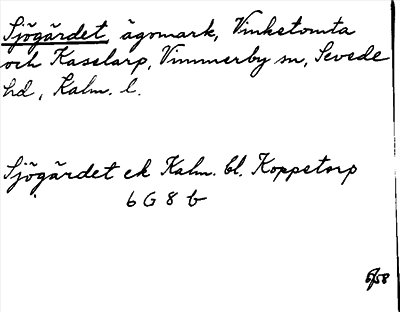 Sjögärdet, ägomark, Vinketomta
och Kasslarp, Vimmerby sn, Sevede
hd, Kalm. l.
Sjögärdet ek Kalm. bl. Koppetorp
6 G 8 b
6/58